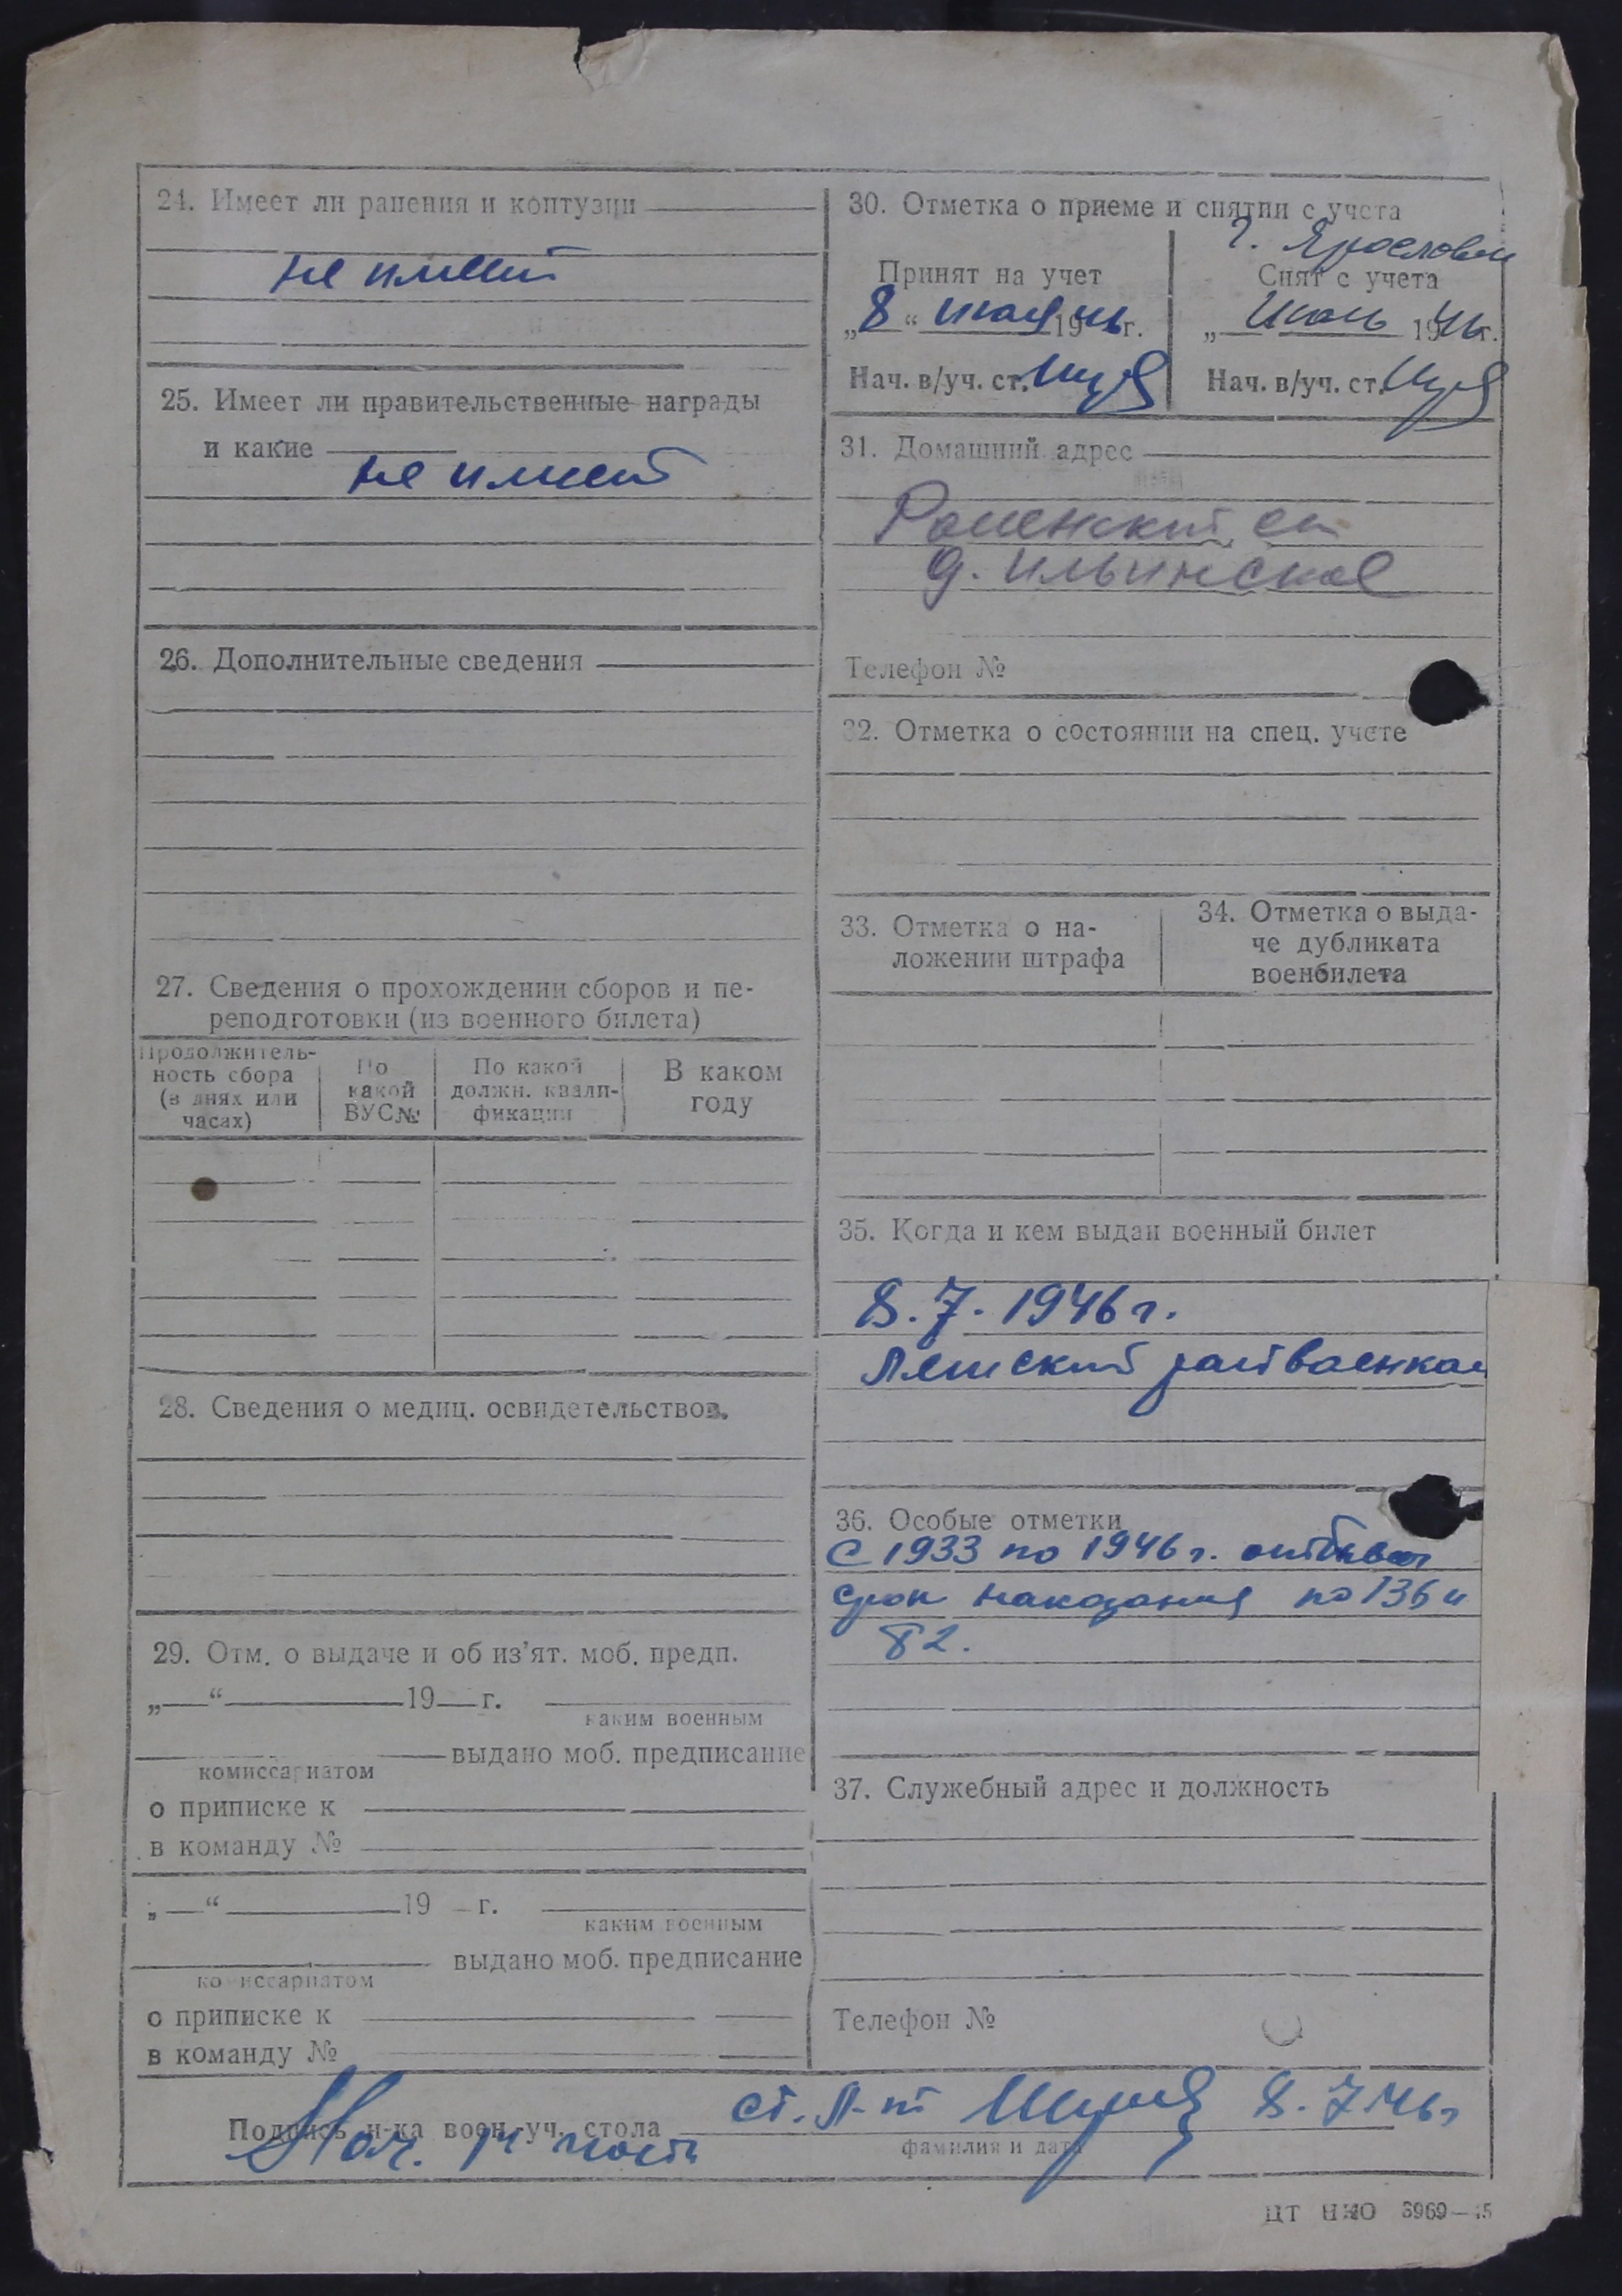 24. Имеет ли ранения и контузии
не имеет
25. Имеет ли правительственные награды
и какие
не имеет
26. Дополнительные сведения
27. Сведения о прохождении сборов и пе-
реподготовки (из военного билета)
Продолжитель-
ность сбора
(в днях или
часах)
По
какой
ВУС№
По какой
должн. квали-
фикации
В каком
году
28. Сведения о медиц. освидетельствов.
29. Отм. о выдаче и об из'ят. моб. предп.
„ “ 19 г.
каким военным
выдано моб. предписание
комиссариатом
о приписке к
в команду №
„ “ 19 г.
каким военным
выдано моб. предписание
комиссариатом
о приписке к
в команду №
30. Отметка о приеме и снятии с учета
г. Ярославль
Принят на учет
„8“ июля 1946г.
Нач. в/уч. ст.
Снят с учета
„ Июль 1946г.
Нач. в/уч. ст.
31. Домашний адрес
д. Ильинское
Телефон №
32. Отметка о состоянии на спец. учете
33. Отметка о на-
ложении штрафа
34. Отметка о выда-
че дубликата
военбилета
35. Когда и кем выдан военный билет
8.7.1946г.
райвоенком
36. Особые отметки
С 1933 по 1946 г. отбывал
срок наказания по 136 и
82.
37. Служебный адрес и должность
Телефон №
Подпись н-ка воен.-уч. стола
ст. л-т 8.7.46г
Нач. части
фамилия и дата
ЦТ НКО 3969—45